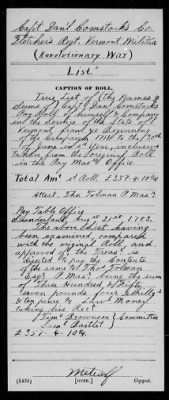 Capt. Dan'l Comstock's Co.
Fletcher's Regt. Vermont Militia
(Revolutionary War)
List
CAPTION OF ROLL.
True List of the Names &
Sums of Capt. Dan'l Comstocks
Pay Roll of himself & Company
in the Service of the State of
Vermont from ye Beginning
of the Campaign 1781 to the
of June in sd Year, inclusive
taken from the Original Roll
in the Pay Mas' Office
Total Amt. of Roll £357. 4. 10¼
Attest, Tho. Tolman P. Mas'
Pay Table Office
Sunderland Augt 21st 1782.
The above List having
been examined, compared
with the original Roll, and
approved of, the Treas' is
directed to pay the Contents
of the same to Thos Tolman
Esqr P. Mas' being the sum
of Three Hundred & Fifty
seven pounds four Shills
& ten pence ¼ Law' Money
taking his Rect
Timy Brownson } Committee
Saml Bartlet
£357. 4. 10¼
Metcalf
(over.)
Copyist.